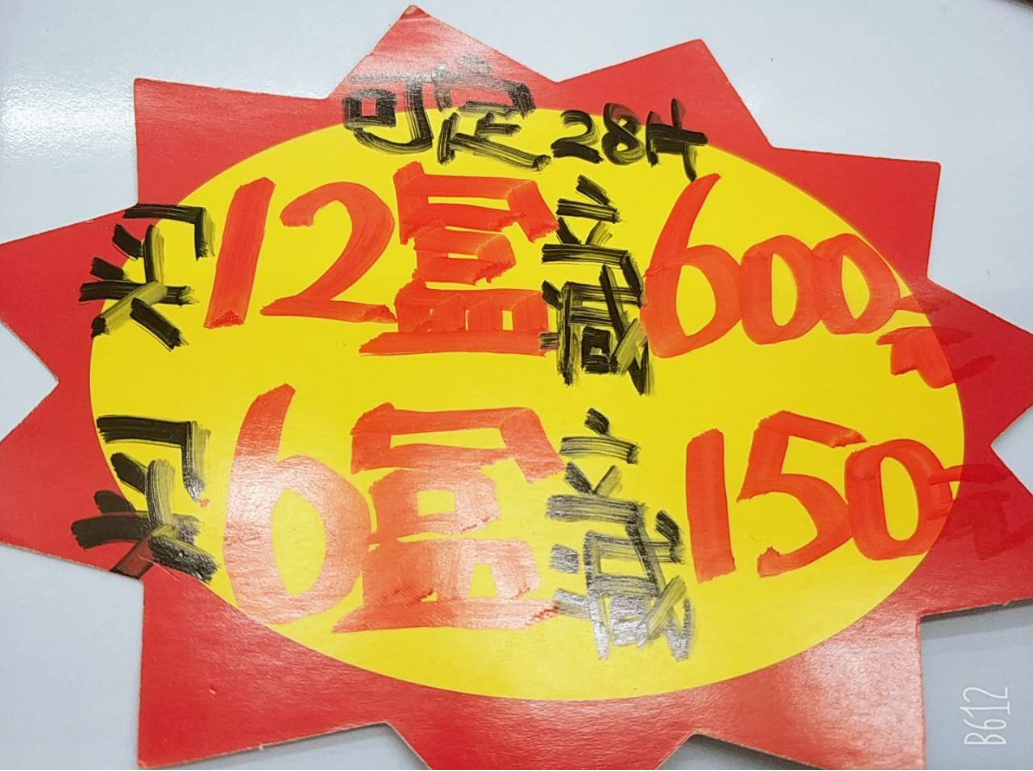 可定284
买12盒立减600元
买6盒立减150元
B612